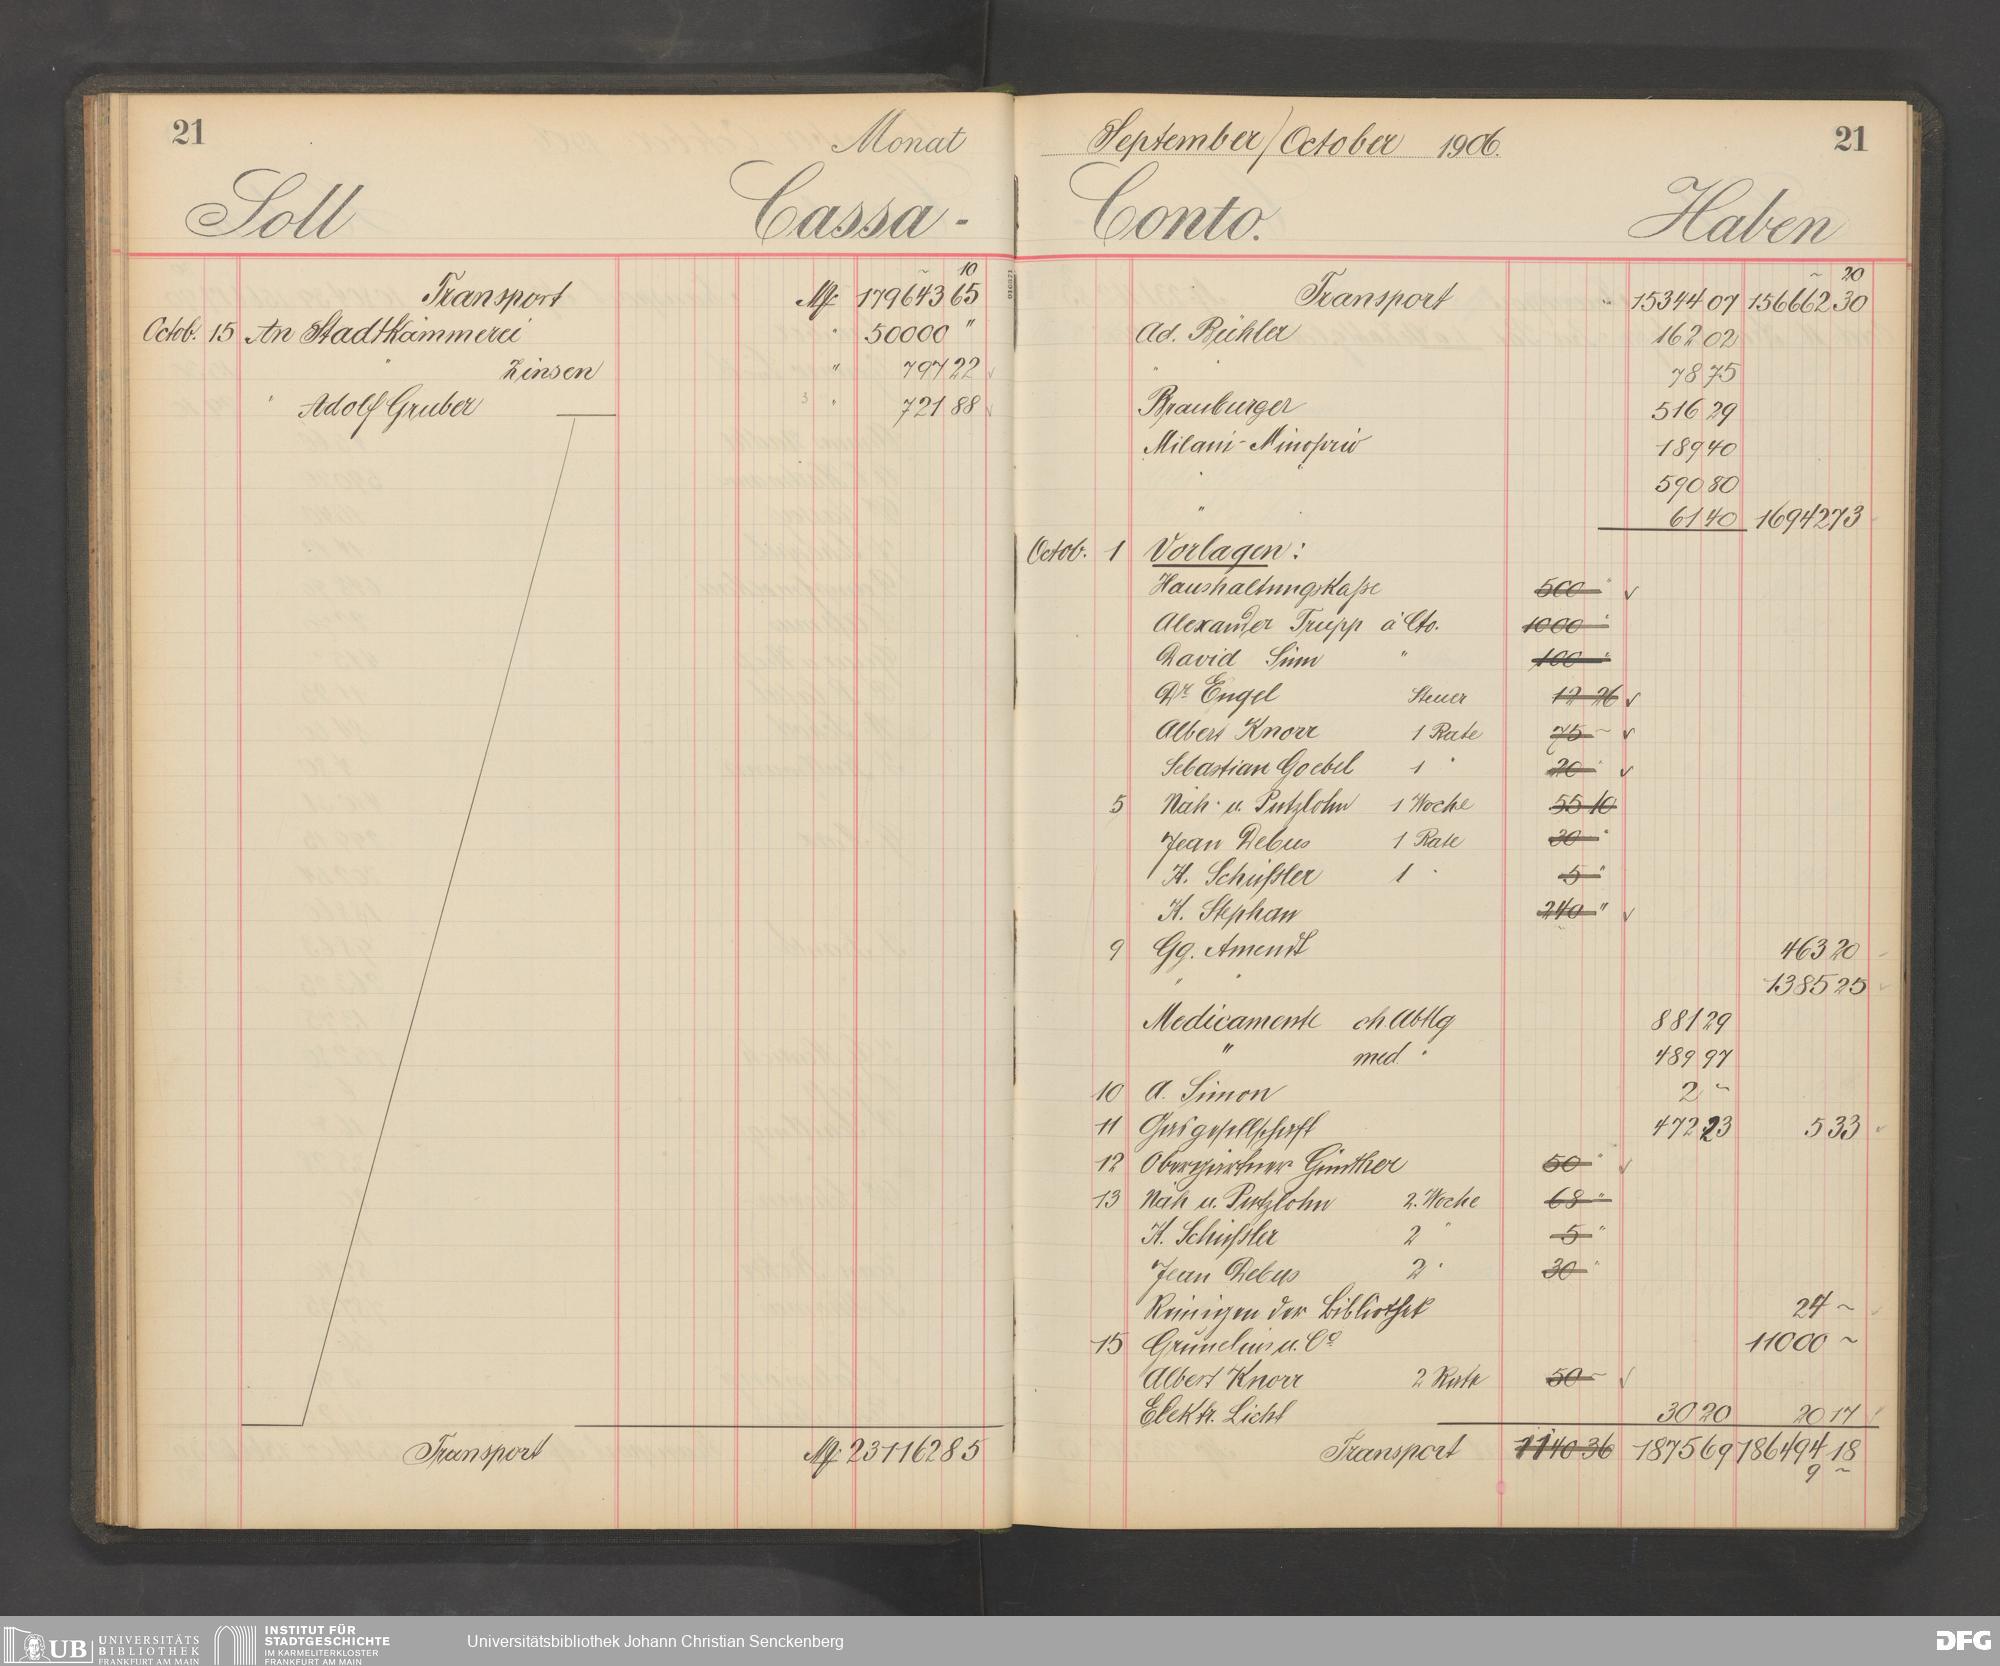 21
Monat
Soll Cassa-
10
Transport M 179643 65
Octob. 15 An Stadtkämmerei " 50000 "
" Zinsen " 797 22
" Adolf Gruber " 721 88
Transport M 231162 85
September/October 1906. 21
Conto. Haben
20
Transport 15344 07 156662 30
Ad. Bühler 162 02
" 78 75
Brauburger 516 29
Milani-Minoprio 189 40
" 590 80
" 61 40 16942 73
Octob. 1 Vorlagen:
Haushaltungskasse 500 "
Alexander Trupp à Cto. 1000 "
David Sinn " 100 "
Dr. Engel Steuer 12 26
Albert Knorr 1 Rate 75 ~
Sebastian Goebel 1 " 20 "
5 Näh- u. Putzlohn 1 Woche 55 10
Jean Debus 1 Rate 30 "
H. Schüssler 1 " 5 "
K. Stephan 240 "
9 Gg. Amendt 463 20
" " 1385 25
Medicamente ch. Abtlg 881 29
" med. " 489 97
10 A. Simon 2 ~
11 Gasgesellschaft 472 23 5 33
12 Obergärtner Günther 50 "
13 Näh u. Putzlohn 2. Woche 68 "
H. Schüssler 2 " 5 "
Jean Debus 2 " 30 "
Reinigen der Bibliothek 24 ~
15 Grunelius u. Co 11000 ~
Albert Knorr 2 Rate 50 ~
Elektr. Licht 30 20 20 17
Transport 1140 36 18756 9 186494 18
9 ~
UB UNIVERSITÄTS
BIBLIOTHEK
FRANKFURT AM MAIN
INSTITUT FÜR
STADTGESCHICHTE
IM KARMELITERKLOSTER
FRANKFURT AM MAIN
Universitätsbibliothek Johann Christian Senckenberg
DFG